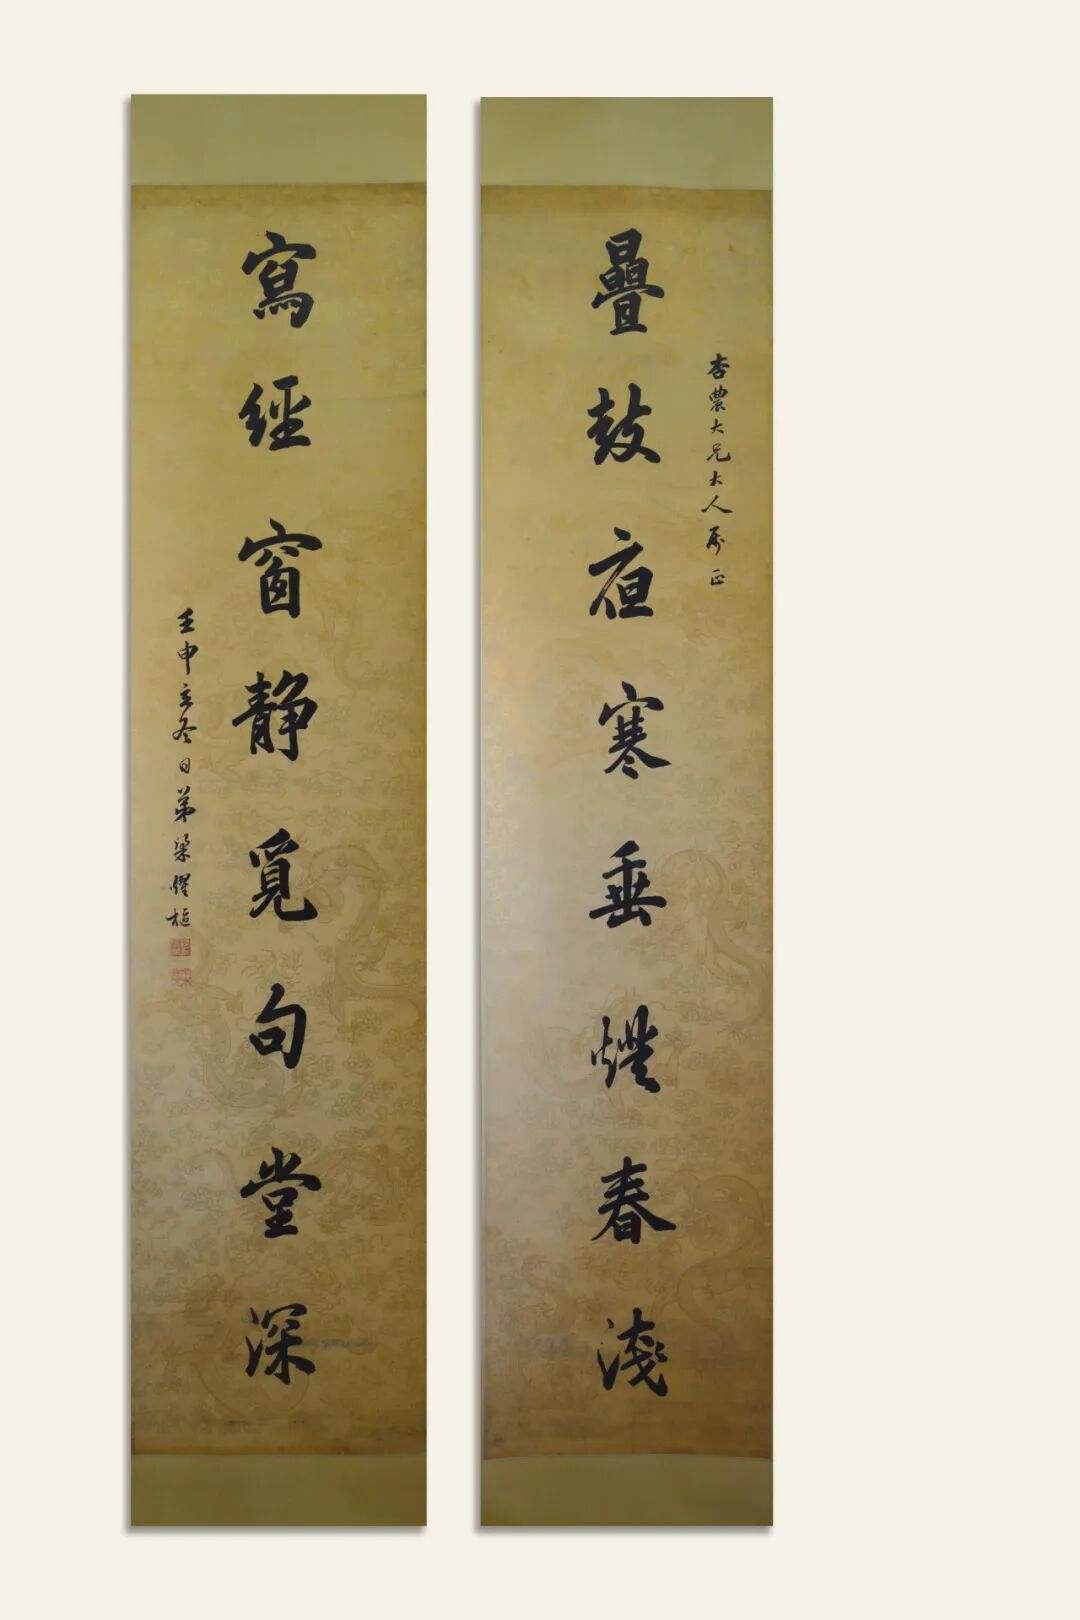 疊鼓夜寒垂燈春淺
杏農大兄大人屬正
寫經窗靜覓句堂深
壬申立冬日弟梁耀樞